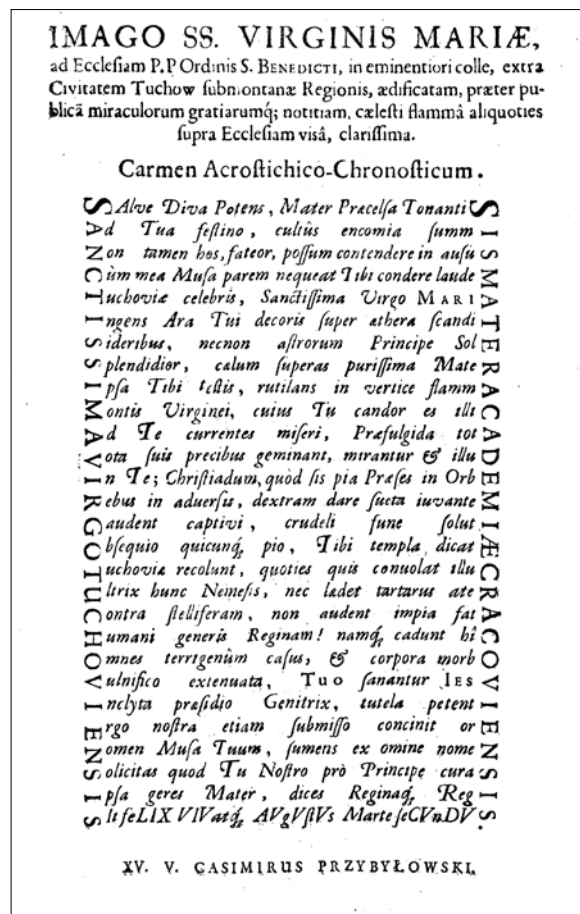 IMAGO SS. VIRGINIS MARIÆ,
ad Eccleſiam P.P Ordinis S. BENEDICTI, in eminentiori colle, extra
Civitatem Tuchow ſubmontanæ Regionis, ædificatam, præter pu-
blicã miraculorum gratiarumq; notitiam, cæleſti flammâ aliquoties
ſupra Eccleſiam visâ, clariſſima.
Carmen Acroſtichico-Chronoſticum.
SAlve Diva Potens, Mater Præcelſa TonantiS
Ad Tua feſtino, cultûs encomia ſummI
Non tamen hos, fateor, poſſum contendere in auſuS
Cùm mea Muſa parem nequeat Tibi condere laudeM
Tuchoviæ celebris, Sanctiſſima Virgo MARIA
Ingens Ara Tui decoris ſuper æthera ſcandiT
Sideribus, necnon aſtrorum Principe SolE
Splendidior, cælum ſuperas puriſſima MateR
Ipſa Tibi teſtis, rutilans in vertice flammA
Montis Virginei, cuius Tu candor es illiC
Ad Te currentes miſeri, Præfulgida totA
Vota ſuis precibus geminant, mirantur & illuD
In Te; Chriſtiadum, quòd ſis pia Præſes in OrbE
Rebus in aduerſis, dextram dare ſueta iuvanteM
Gaudent captivi, crudeli fune ſolutI
Obſequio quicunq; pio, Tibi templa dicatÆ
Tuchoviæ recolunt, quoties quis conuolat illuC
Ultrix hunc Nemeſis, nec lædet tartarus ateR
Contra ſtelliferam, non audent impia fatA
Humani generis Reginam! namq; cadunt hîC
Omnes terrigenûm caſus, & corpora morbO
Vulnifico extenuata, Tuo ſanantur IESV
Inclyta præſidio Genitrix, tutela petentI
Ergo noſtra etiam ſubmiſſo concinit orE
Nomen Muſa Tuum, ſumens ex omine nomeN
Solicitas quod Tu Noſtro prò Principe curaS
Ipſa geres Mater, dices Reginaq; RegI
SIt feLIX VIVatq; AVgVſtVs Marte feCVnDVS.
XV. V. CASIMIRUS PRZYBYŁOWSKI.